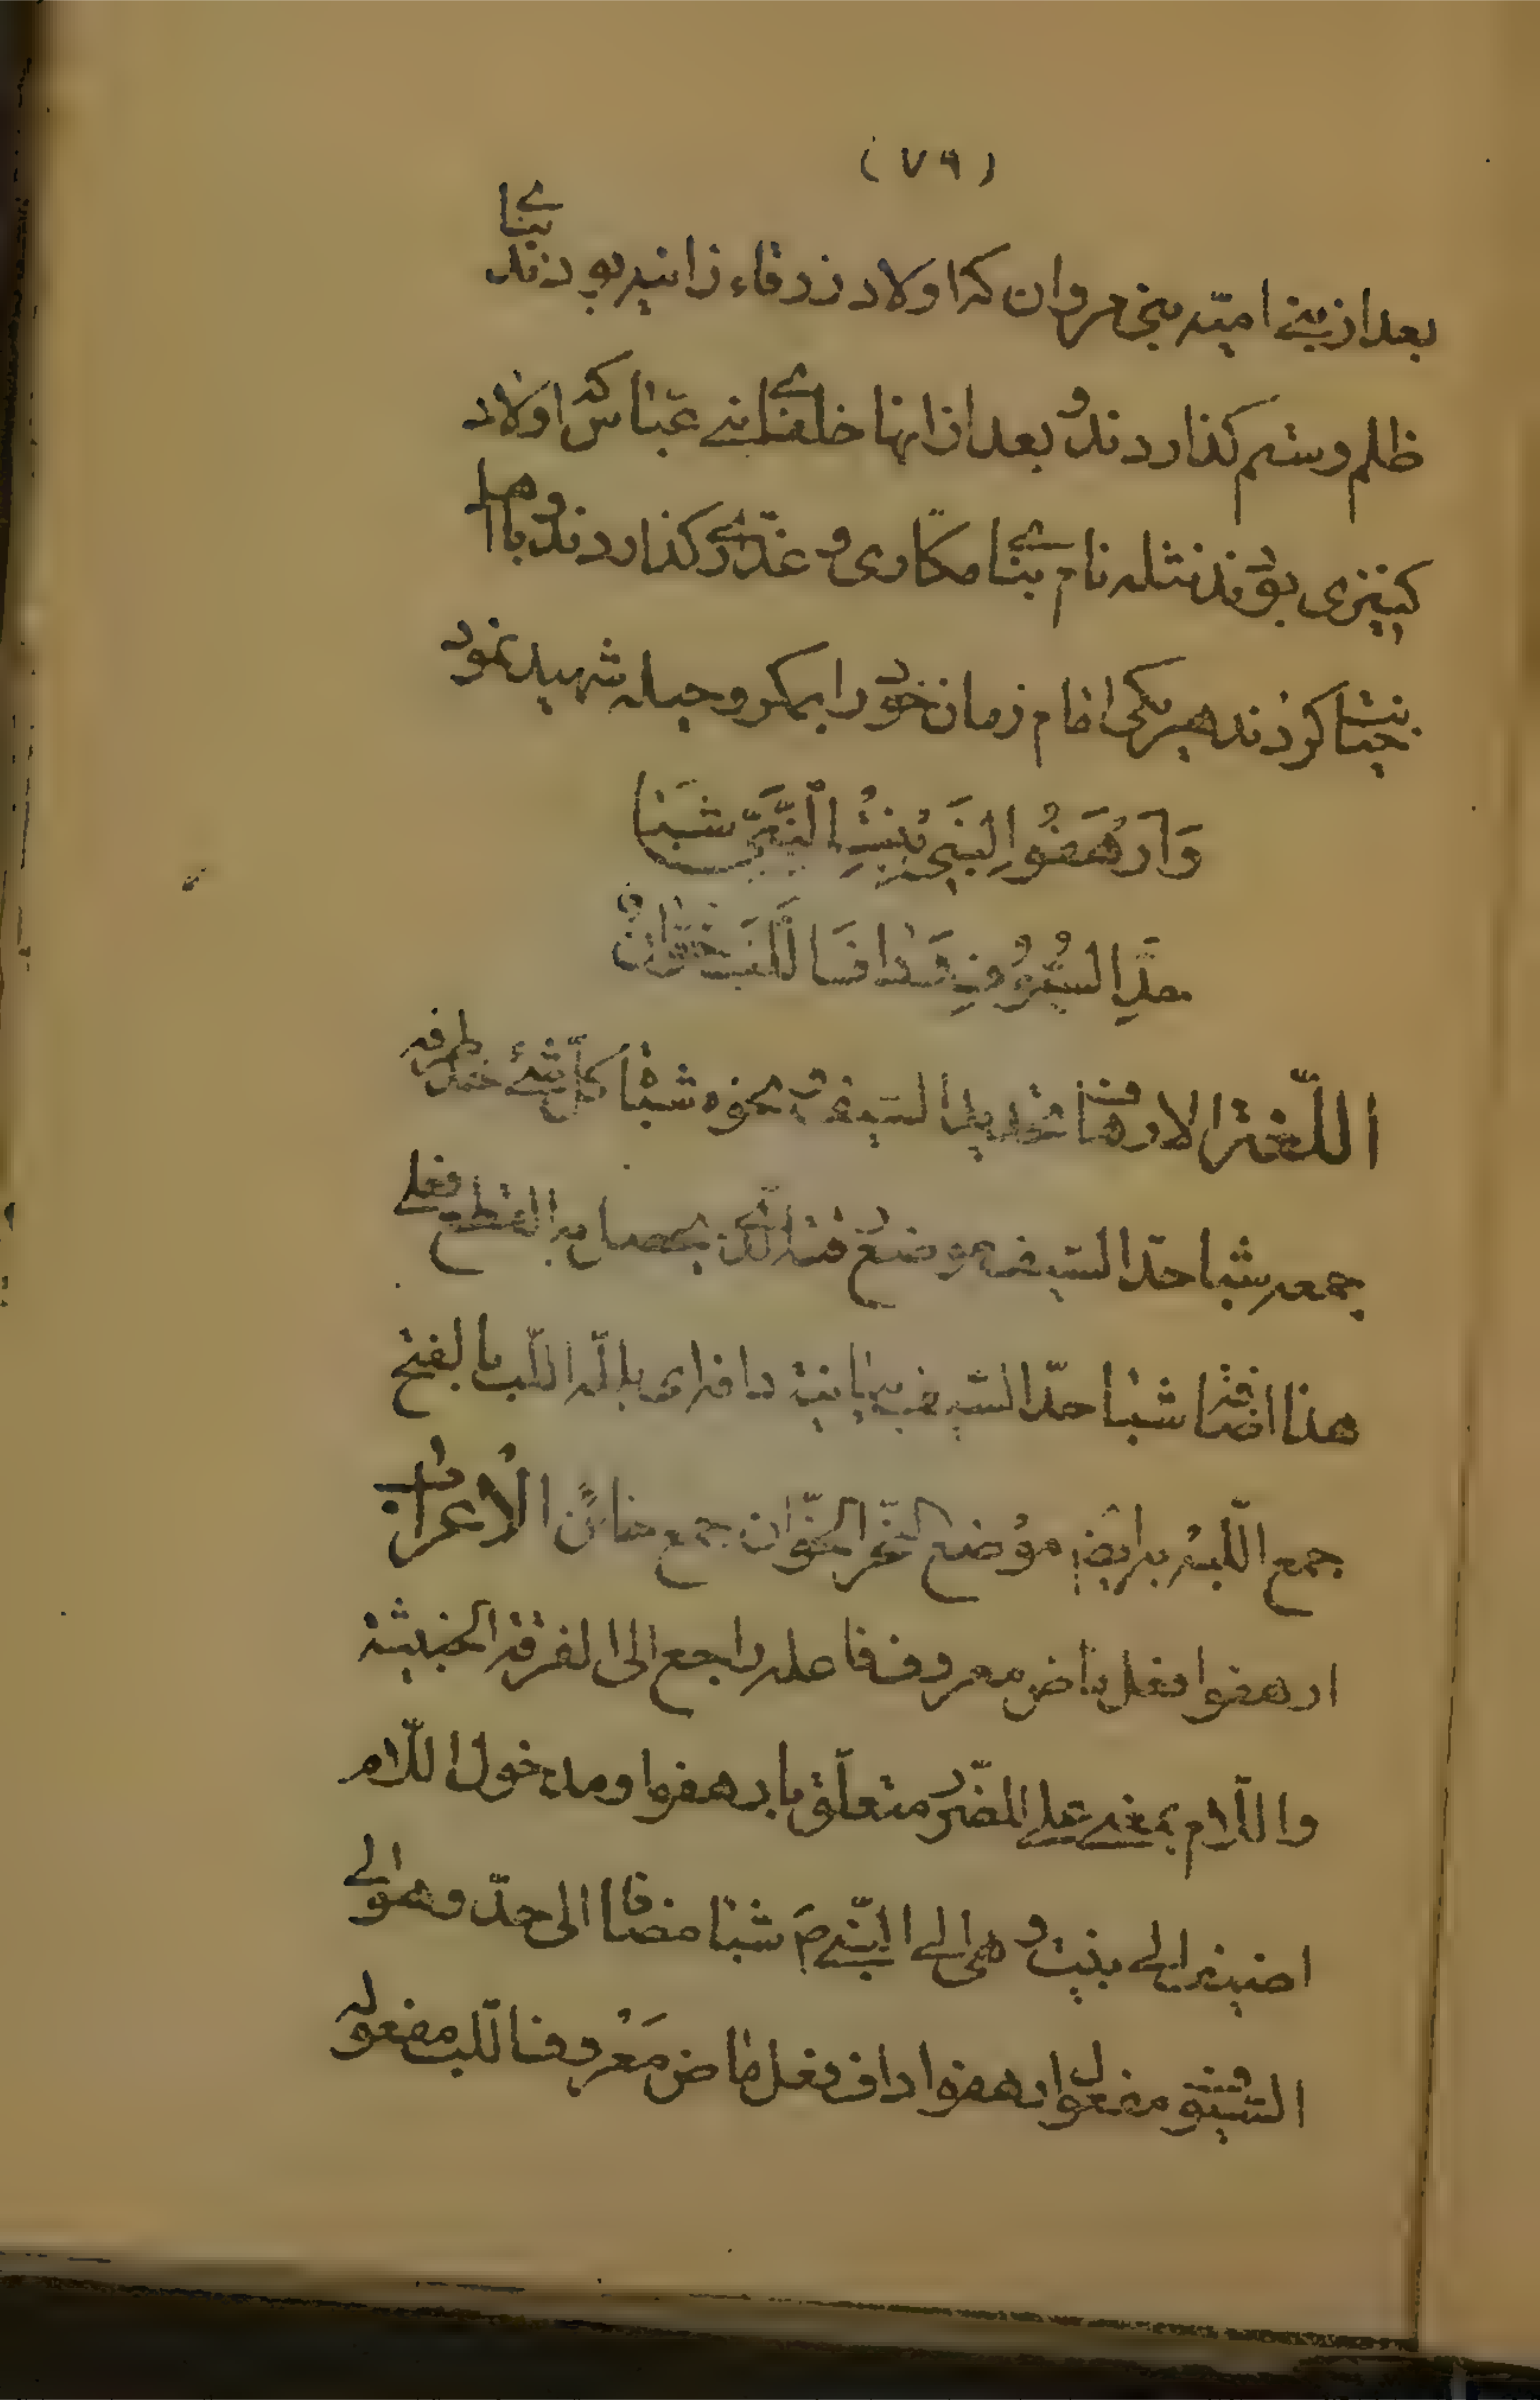 (٧٩)
بعد از بنی امیّه بنی مروان که اولاد زرقاء زانیه بودند بنای
ظلم و ستم گذاردند و بعد از انها خلفای بنی عبّاس که اولاد
کنیزی بودند نثله نام بنای مکّاری و غدّاری گذاردند و باهل
بیت کردند هر یکی امام زمان خود را بمکر و حیله شهید نمود
وَارهَفُوا لِبَنی بِنْتِ النَّبیِّ شَبَا
حدِّ السُیُوفِ
اللّغة الارهاف تحدید السیف و نحوه شبا کلّ شئ حدّ طرفه
جمعه شبا حدّ السیف موضع منه الّذی یحصل به القطع فعلی
هذا اضافة شبا حدّ السیف بیانیة دافرای بلّه اللّبب بالفتح
جمع اللّبه ایضا موضع النّحر الخوّان جمع خائن الْاُعراب
ارهفوا فعل ماض معروف فاعله راجع الی الفرقة الخبیثة
و اللّام بمعنی علی للضّرر متعلّق بارهفوا و مدخول اللّام
اضیف الی بنت و هی الی النّبی ص شبا مضافا الی حدّ و هو الی
السّیوف مفعول ارهفوا داف فعل ماض مَعْروف اللبب مفعوله